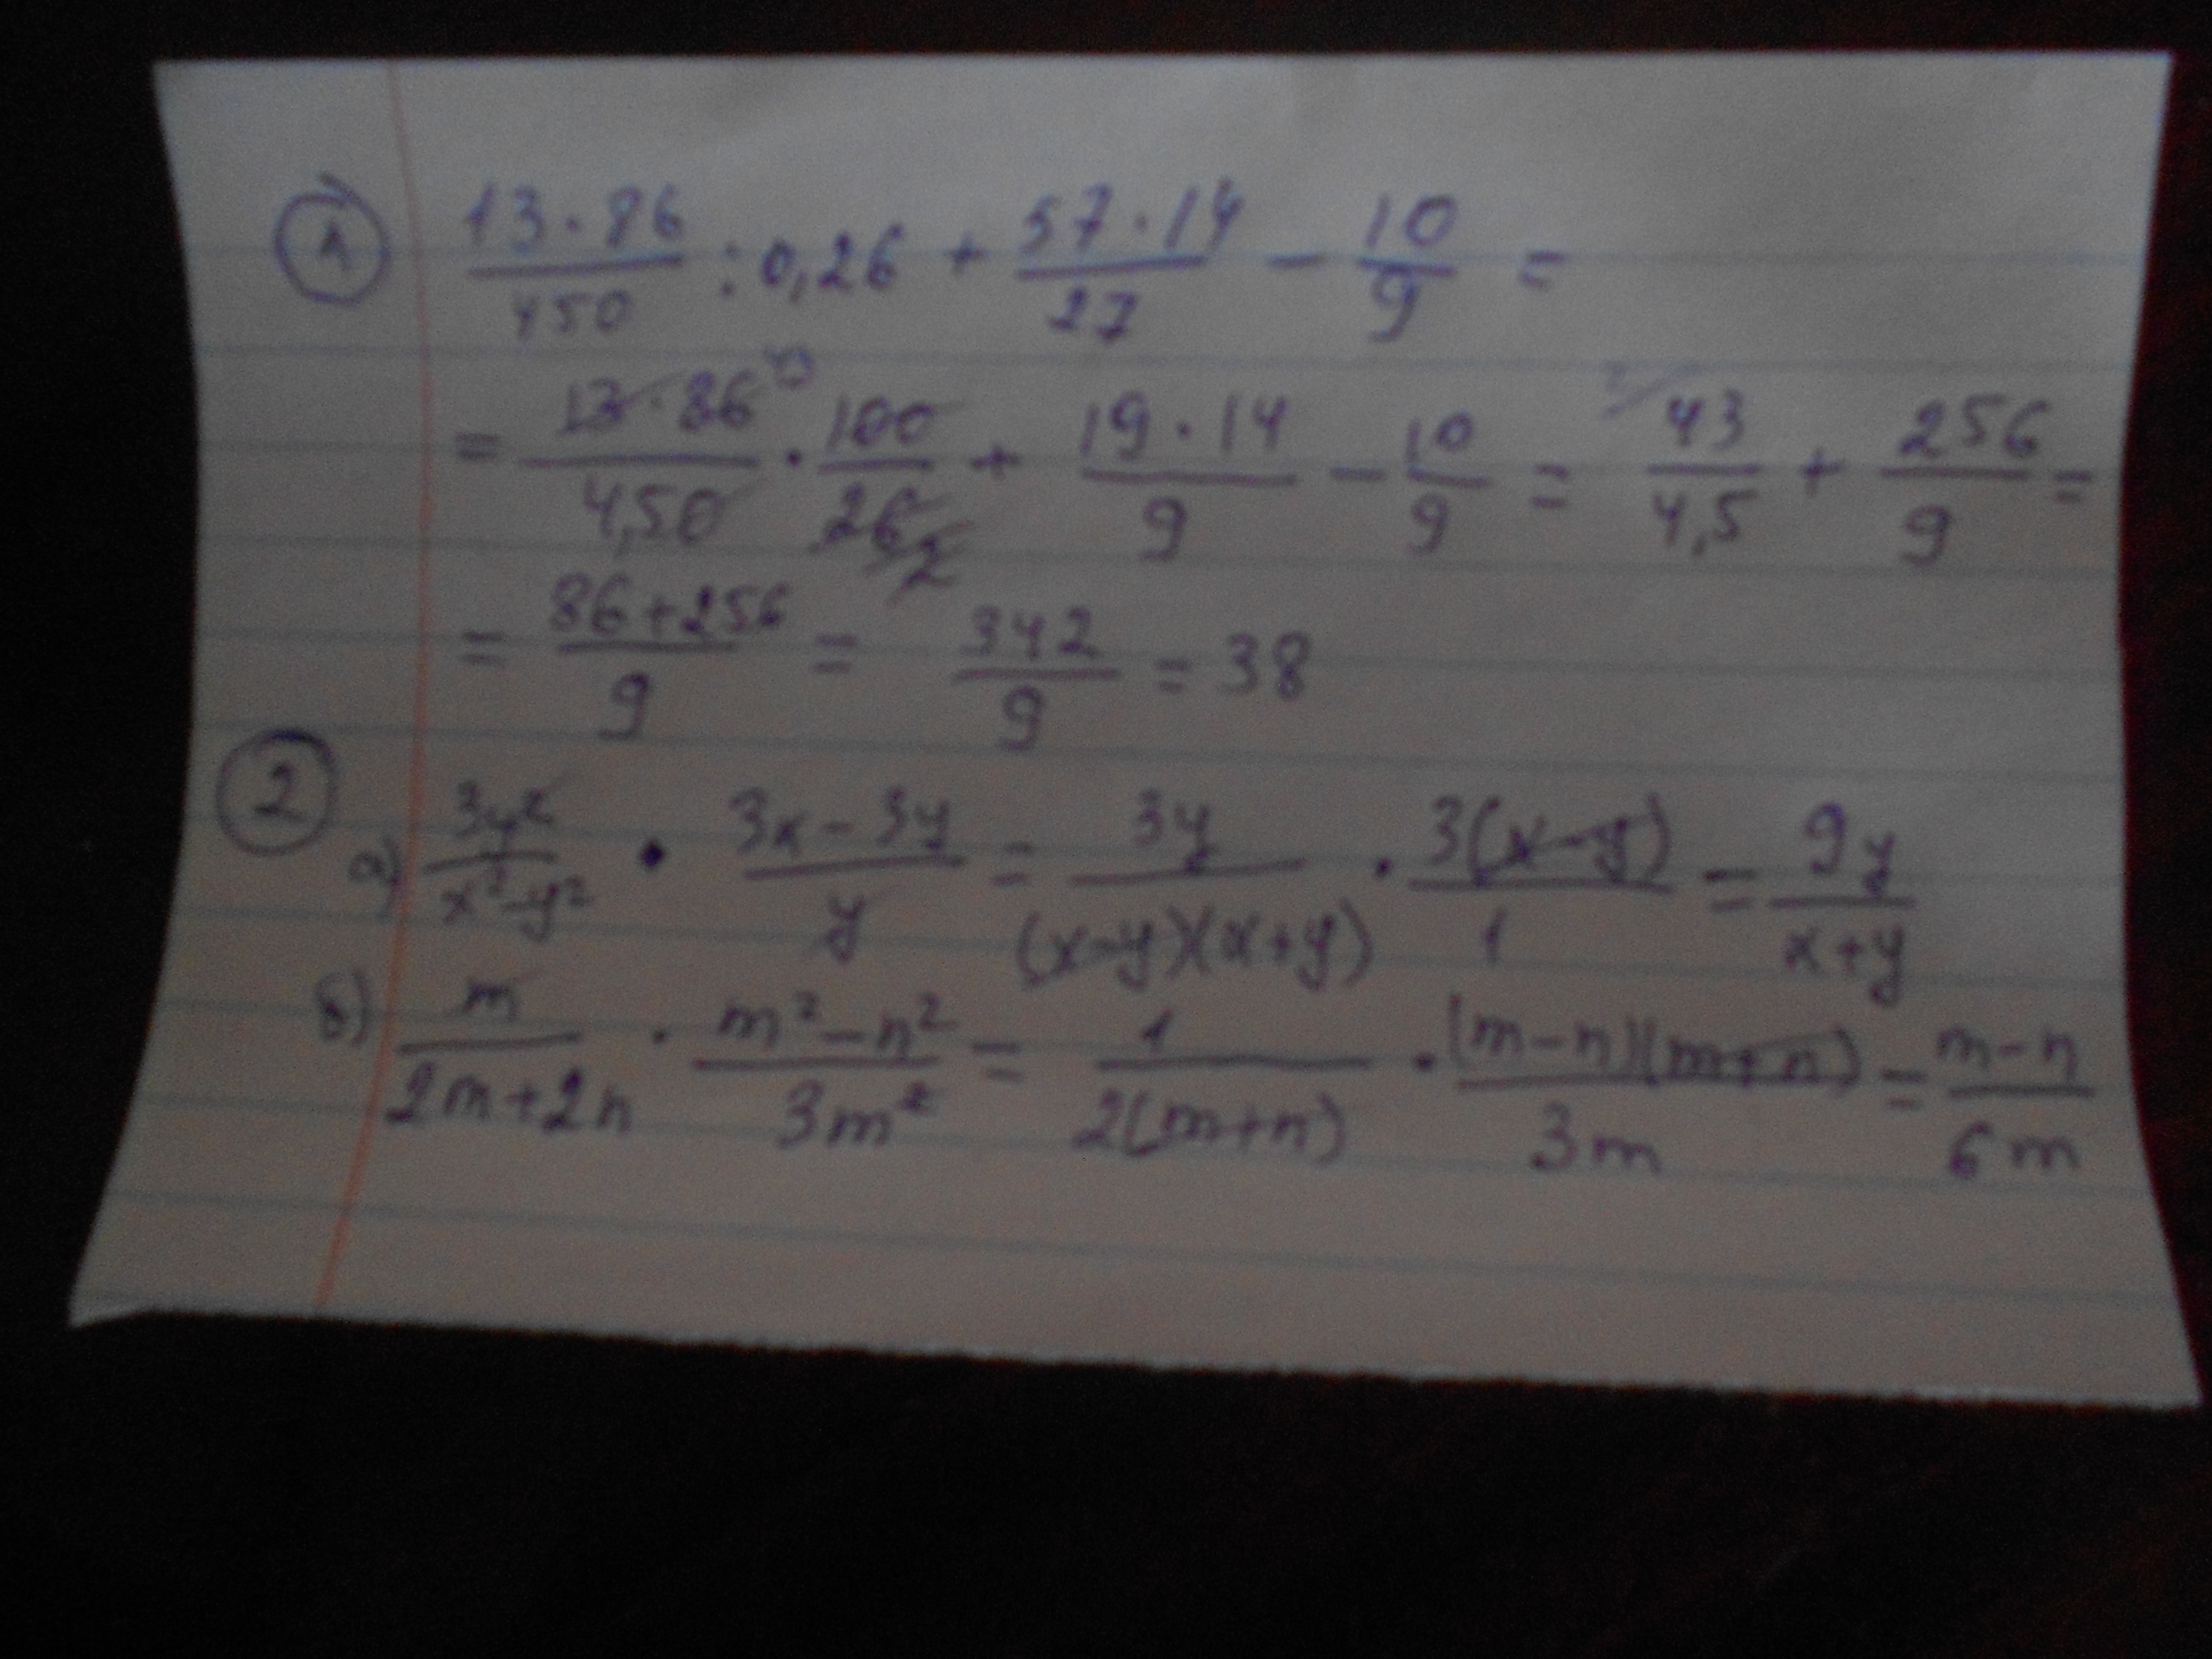 1 13·86/450 : 0,26 + 57·14/27 − 10/9 =
= 13·86/4,50 · 100/26 2 + 19·14/9 − 10/9 = 43/4,5 + 256/9 =
= 86+256/9 = 342/9 = 38
2
а) 3y²/x²−y² · 3x−3y/y = 3y/(x−y)(x+y) · 3(x−y)/1 = 9y/x+y
б) m/2m+2n · m²−n²/3m² = 1/2(m+n) · (m−n)(m+n)/3m = m−n/6m